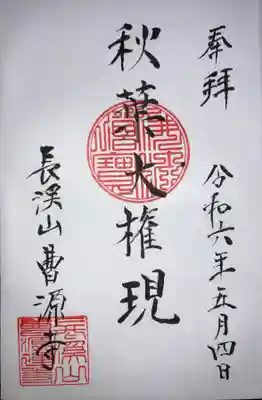 奉拝
令和六年五月四日
秋葉大権現
長渓山曹源寺